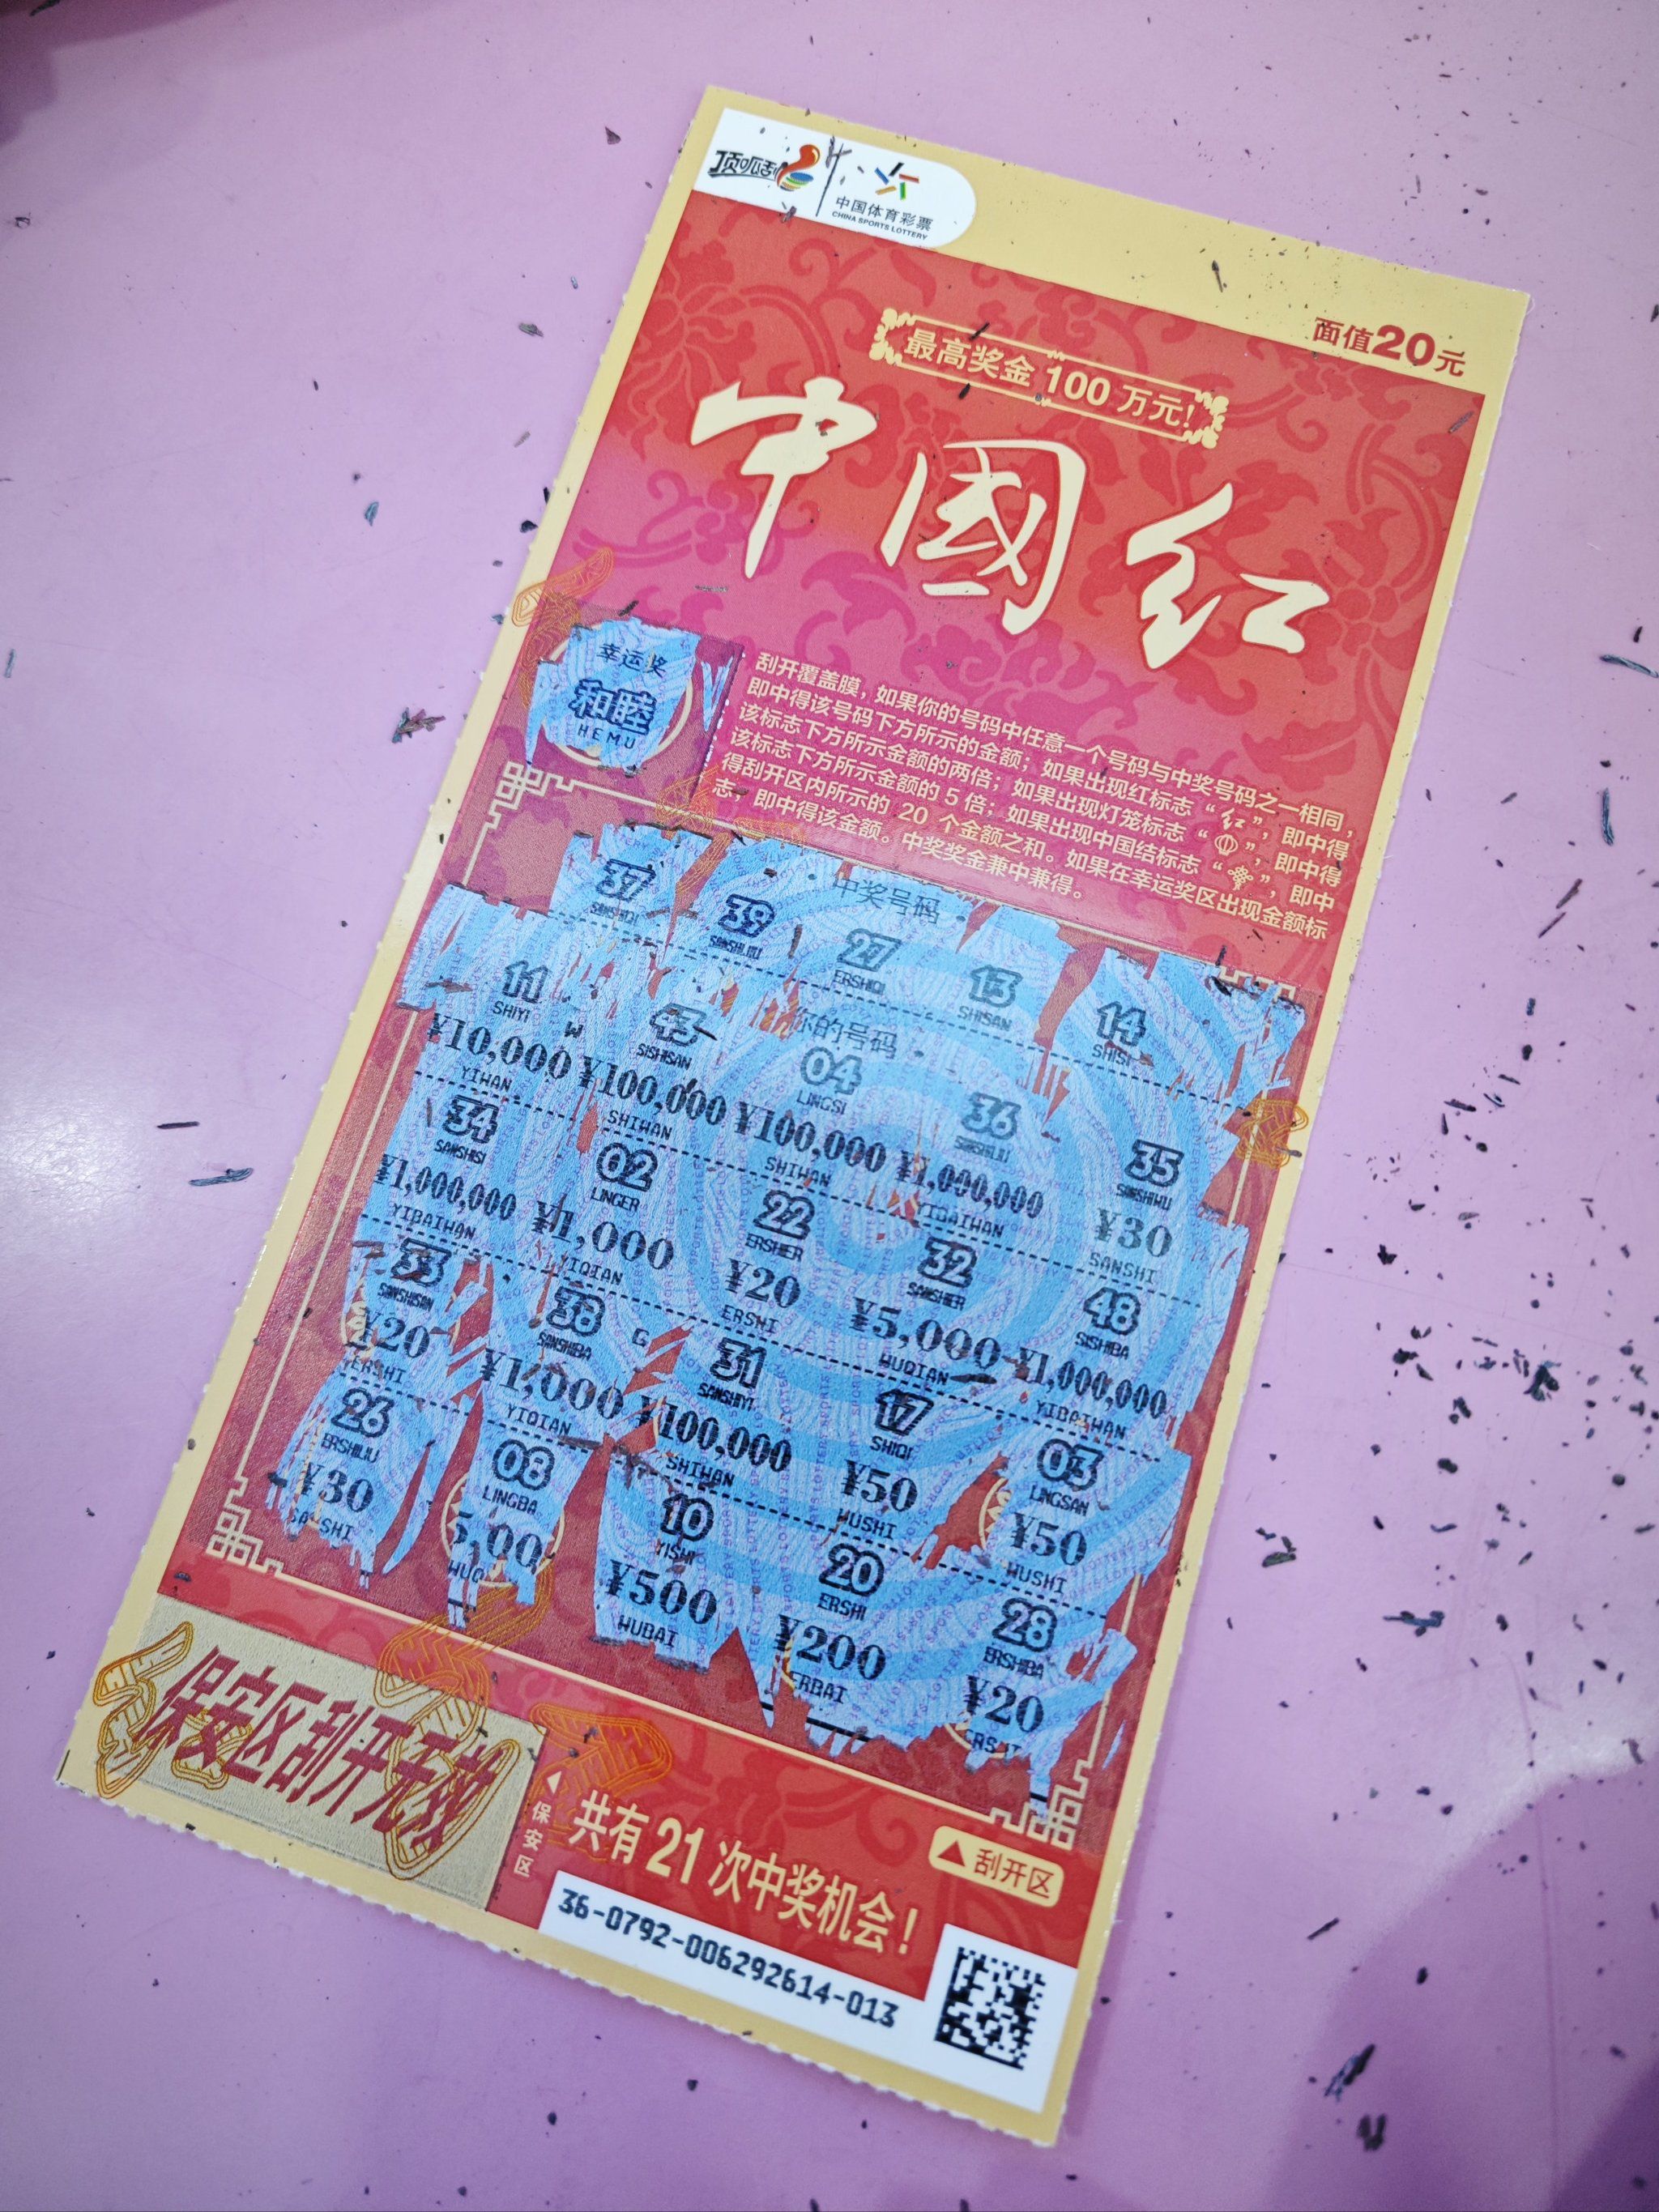 顶呱刮
中国体育彩票
CHINA SPORTS LOTTERY
面值20元
最高奖金 100 万元!
中國红
幸运奖
和睦
HEMU
刮开覆盖膜，如果你的号码中任意一个号码与中奖号码之一相同，
即中得该号码下方所示的金额；如果出现红标志“红”，即中得
该标志下方所示金额的两倍；如果出现灯笼标志“”，即中得
该标志下方所示金额的 5 倍；如果出现中国结标志“”，即中
得刮开区内所示的 20 个金额之和。如果在幸运奖区出现金额标
志，即中得该金额。中奖奖金兼中兼得。
中奖号码
37 39 27 13 14
SANSHIQI SANSHIJIU ERSHIQI SHISAN SHISI
你的号码
11 43 04 36 35
SHIYI SISHISAN LINGSI SANSHILIU SANSHIWU
¥10,000 ¥100,000 ¥100,000 ¥1,000,000 ¥30
YIWAN SHIWAN SHIWAN YIBAIWAN SANSHI
W
34 02 22 32 48
SANSHISI LINGER ERSHIER SANSHIER SISHIBA
¥1,000,000 ¥1,000 ¥20 ¥5,000 ¥1,000,000
YIBAIWAN YIQIAN ERSHI WUQIAN YIBAIWAN
33 38 31 17 03
SANSHISAN SANSHIBA SANSHIYI SHIQI LINGSAN
¥20 ¥1,000 ¥100,000 ¥50 ¥50
ERSHI YIQIAN SHIWAN WUSHI WUSHI
G
26 08 10 20 28
ERSHILIU LINGBA YISHI ERSHI ERSHIBA
¥30 5,00 ¥500 ¥200 ¥20
SA SHI WUQ WUBAI ERBAI ERSHI
保安区刮开无效
◀保安区
共有 21 次中奖机会!
▲刮开区
36-0792-006292614-013